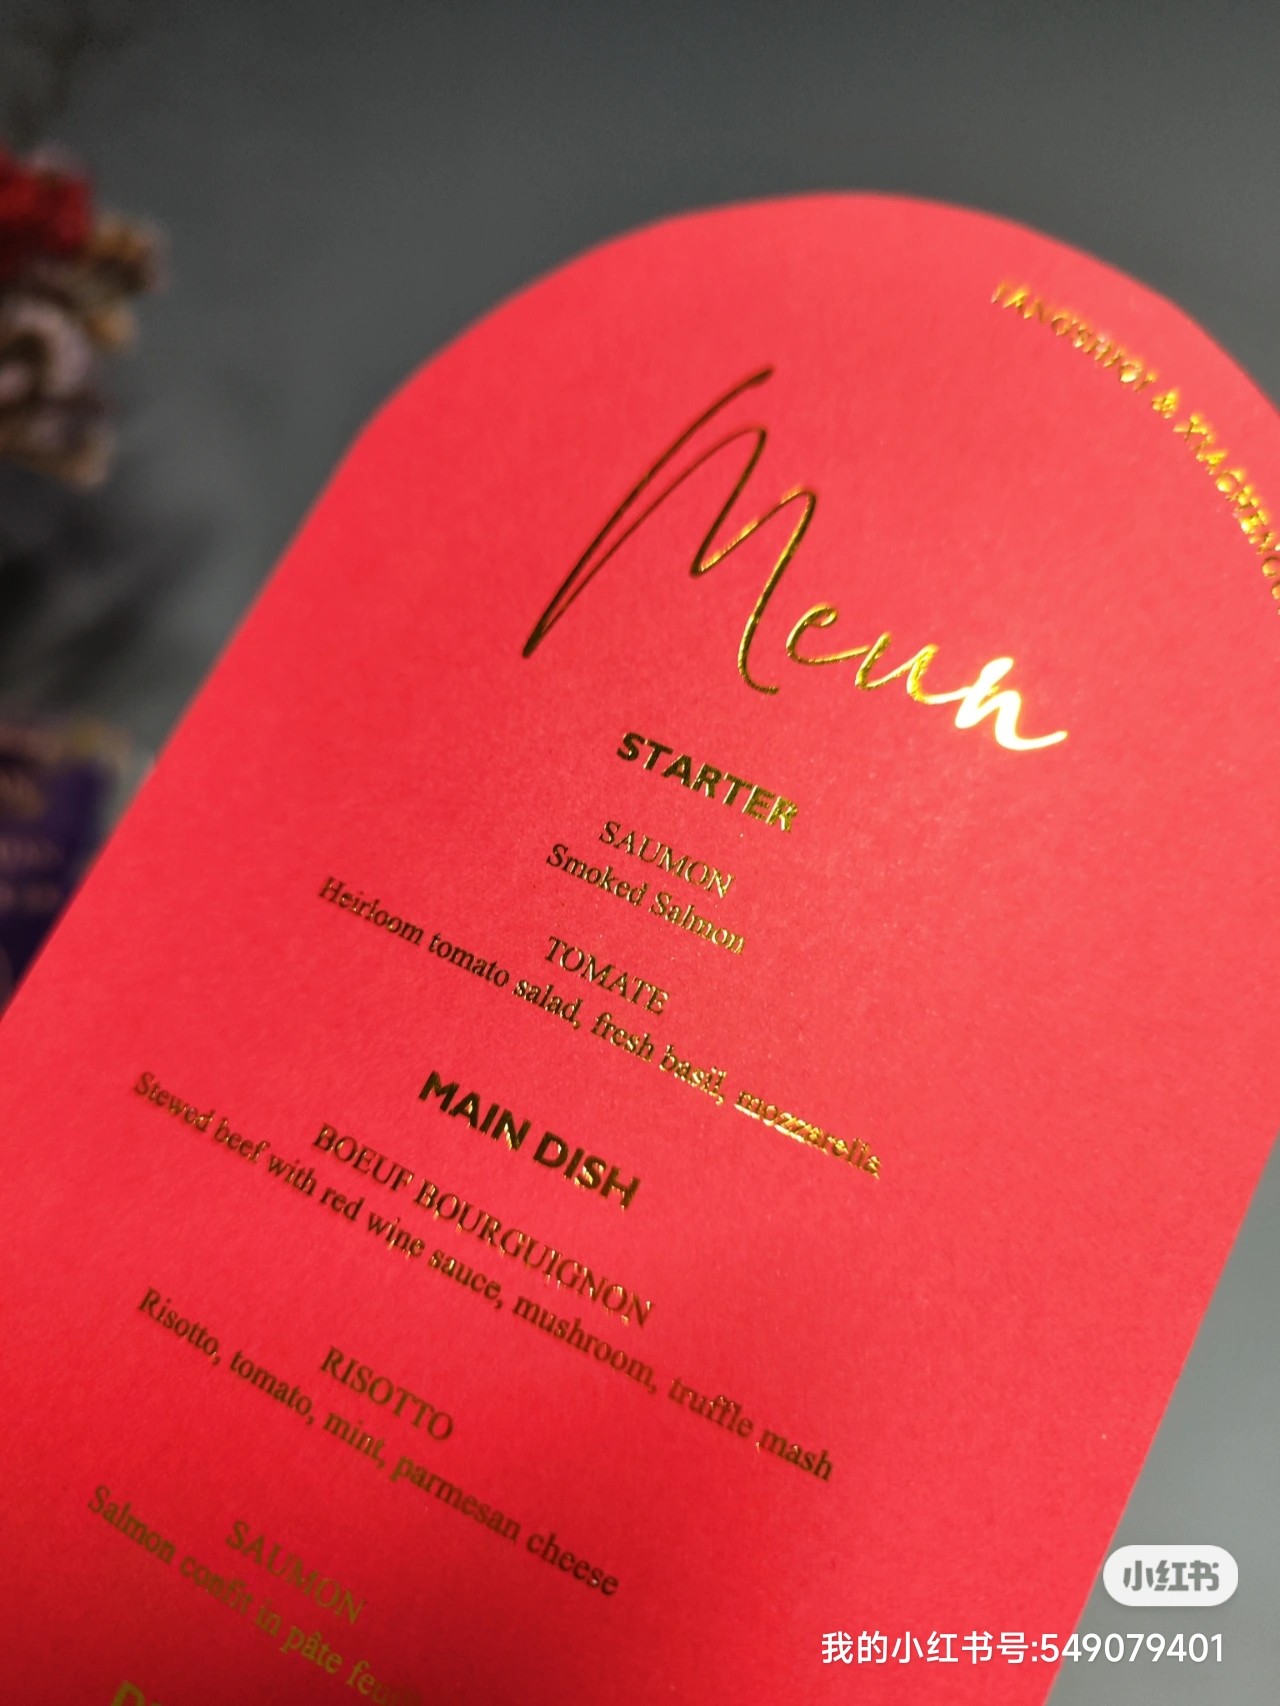 &
Meun
STARTER
SAUMON
Smoked Salmon
TOMATE
Heirloom tomato salad, fresh basil, mozzarella
MAIN DISH
BOEUF BOURGUIGNON
Stewed beef with red wine sauce, mushroom, truffle mash
RISOTTO
Risotto, tomato, mint, parmesan cheese
SAUMON
Salmon confit in pâte
小红书
我的小红书号:549079401